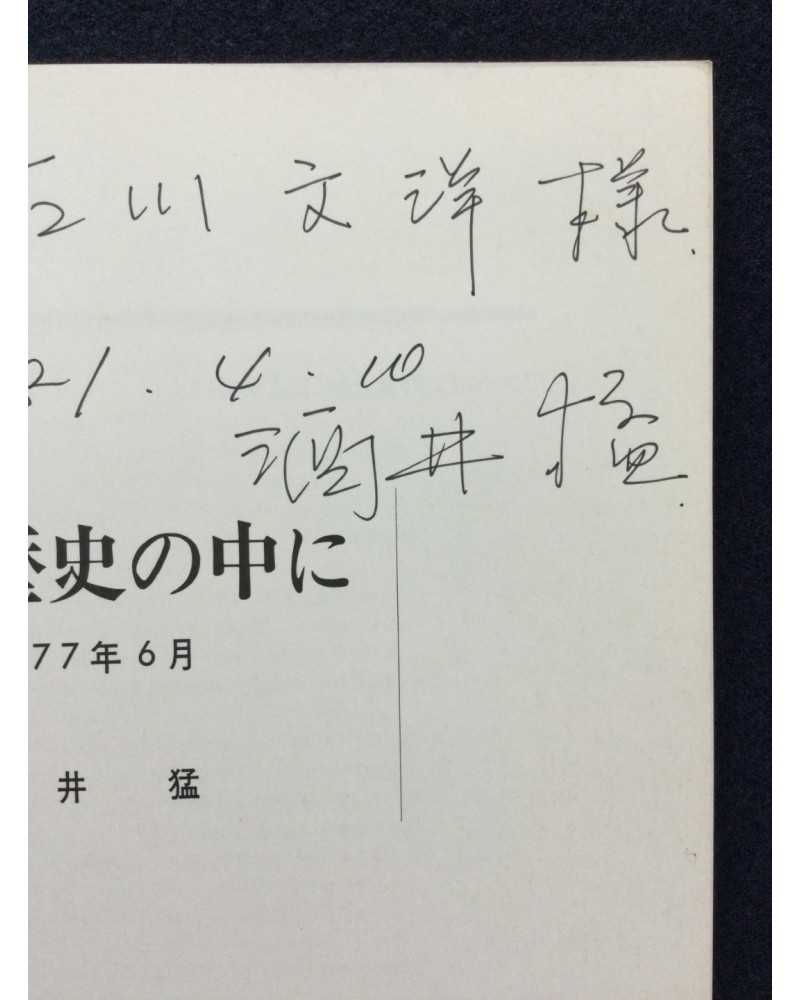 石川文洋様
21.4.10
酒井猛
歴史の中に
77年6月
井 猛